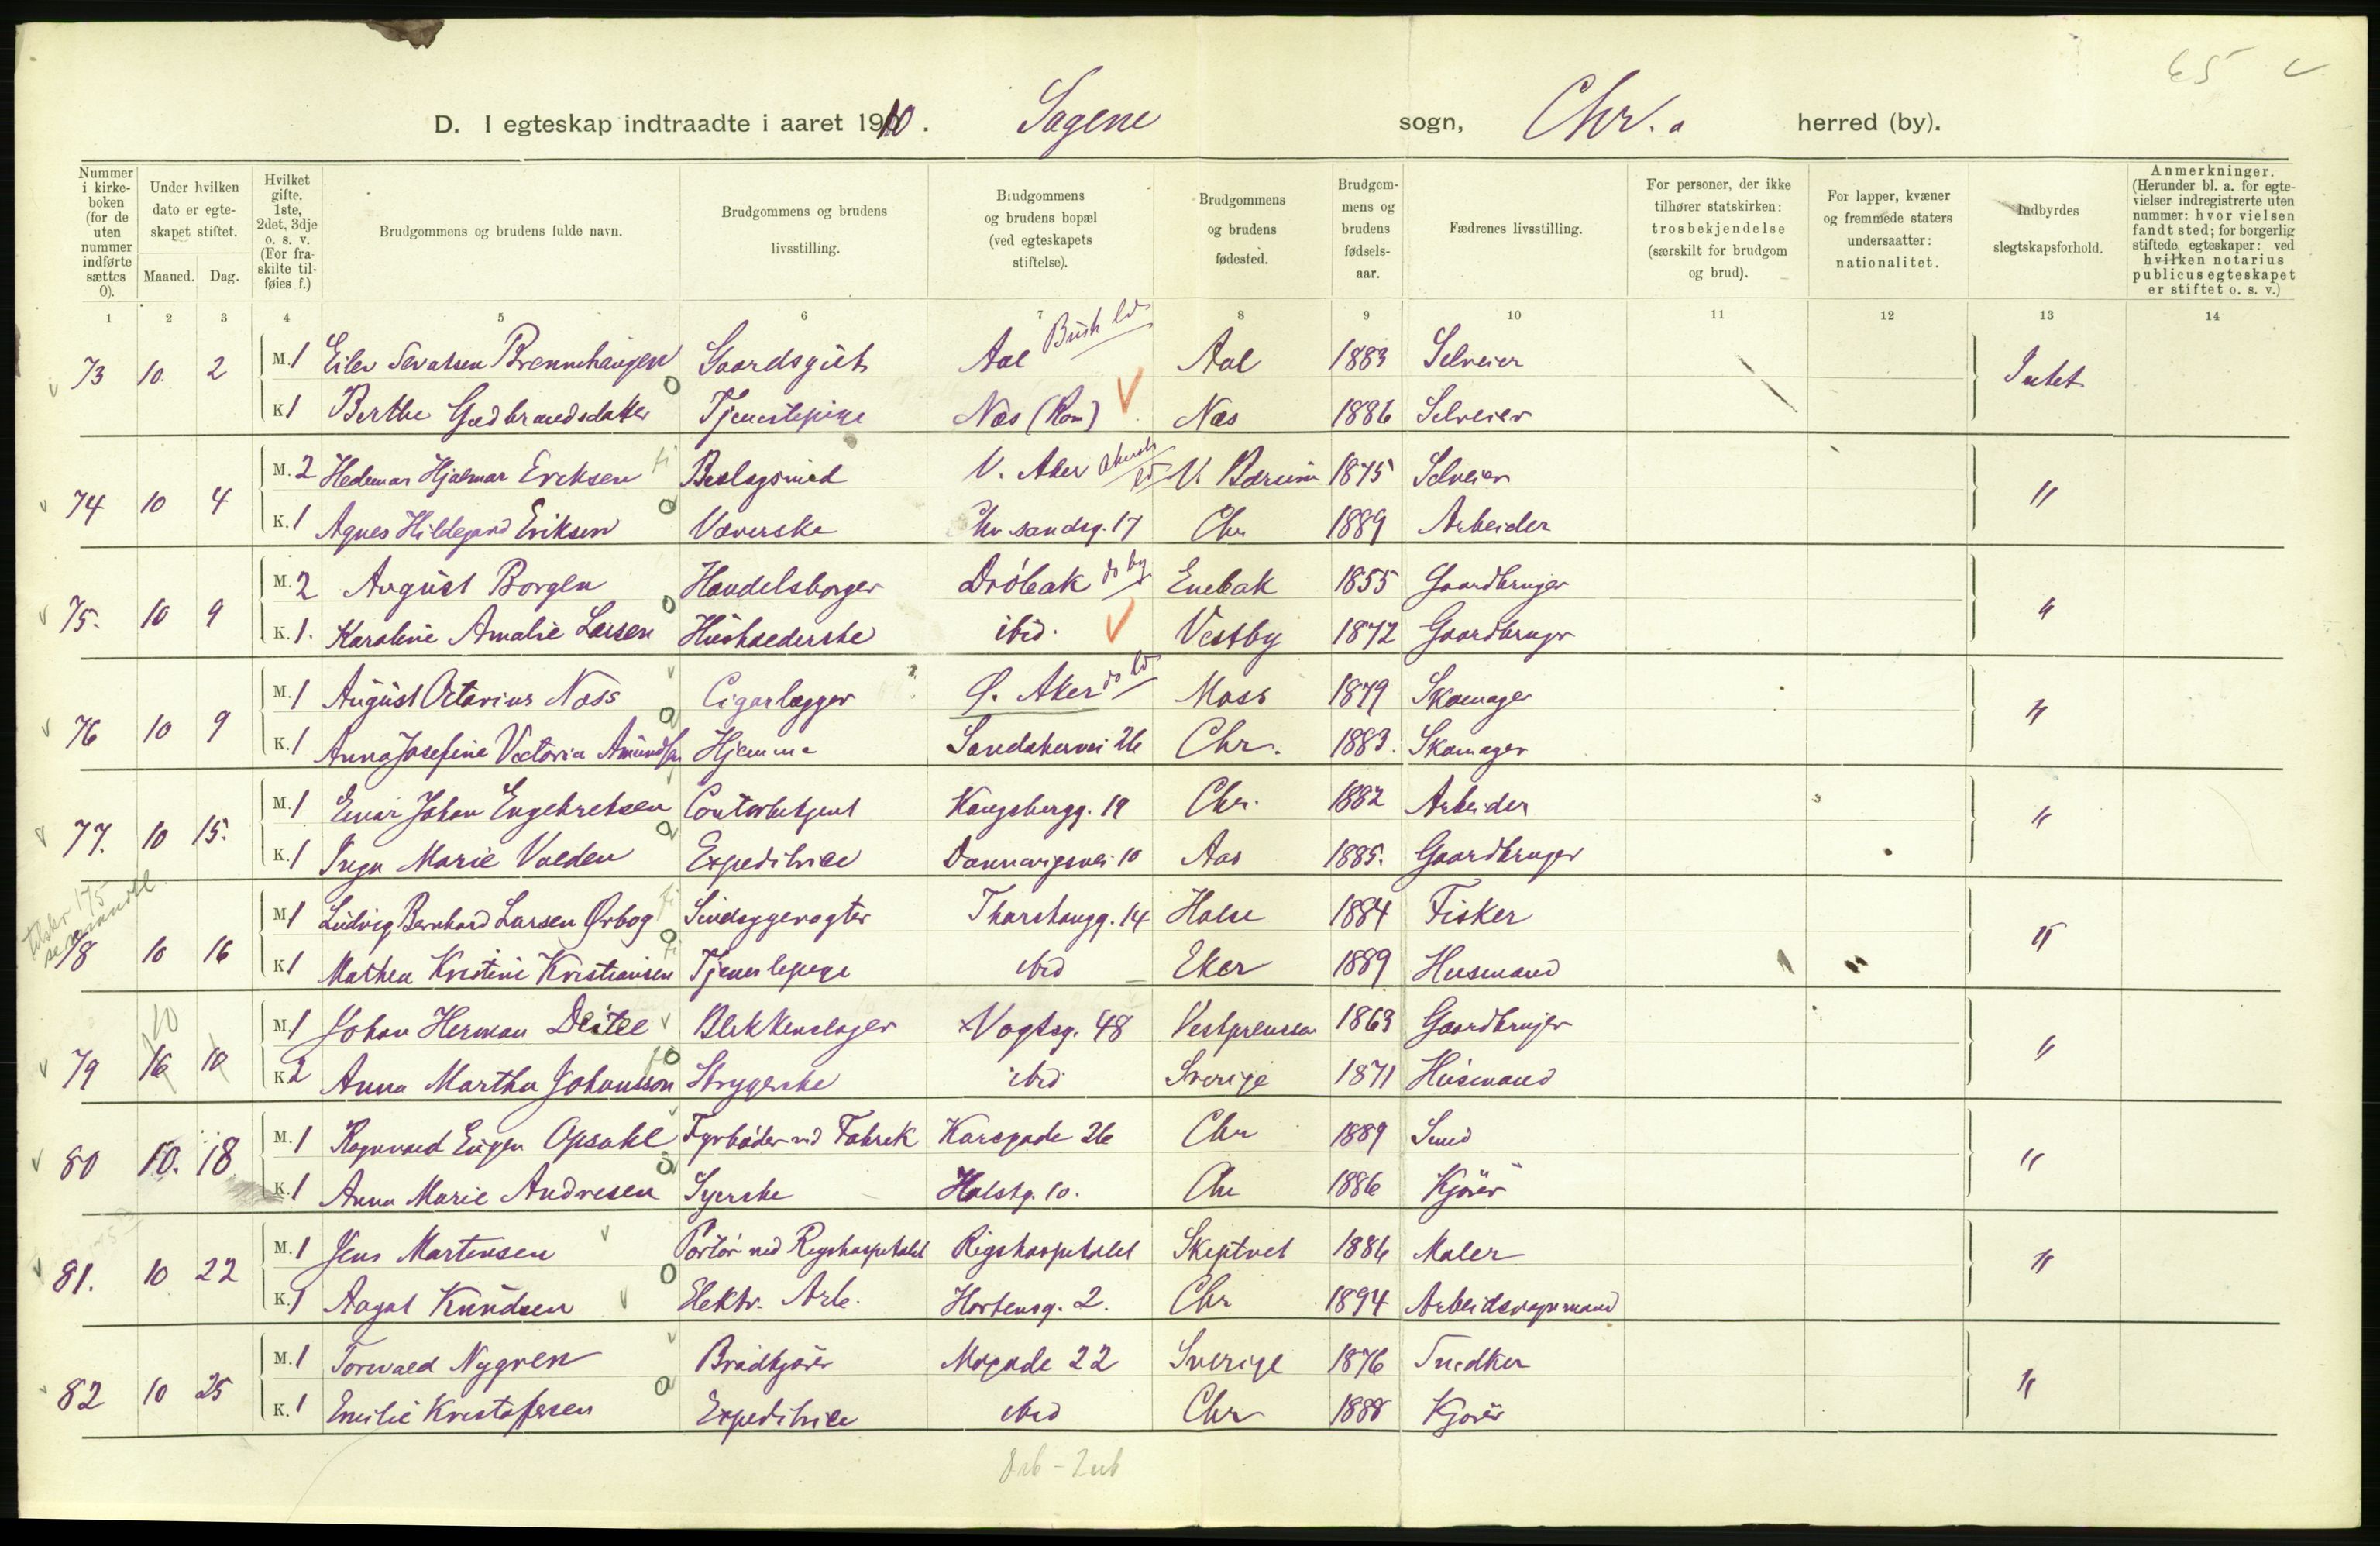 65 v
D. I egteskap indtraadte i aaret 1910. Sagene sogn, Chr.a herred (by).
Nummer i kirkeboken (for de uten nummer indførte sættes 0).
Under hvilken dato er egteskapet stiftet.
Maaned. Dag.
Hvilket gifte. 1ste, 2det, 3dje o. s. v. (For fraskilte tilføies f.)
Brudgommens og brudens fulde navn.
Brudgommens og brudens livsstilling.
Brudgommens og brudens bopæl (ved egteskapets stiftelse).
Brudgommens og brudens fødested.
Brudgommens og brudens fødselsaar.
Fædrenes livsstilling.
For personer, der ikke tilhører statskirken: trosbekjendelse (særskilt for brudgom og brud).
For lapper, kvæner og fremmede staters undersaatter: nationalitet.
Indbyrdes slegtskapsforhold.
Anmerkninger. (Herunder bl. a. for egtevielser indregistrerte uten nummer: hvor vielsen fandt sted; for borgerlig stiftede egteskaper: ved hvilken notarius publicus egteskapet er stiftet o. s. v.)
1 2 3 4 5 6 7 8 9 10 11 12 13 14
73 10. 2 M. 1 Eilev Sevatsen Brennhaugen Gaardsgut Aal Busk ld Aal 1883 Selveier Intet
K 1 Berthe Gudbrandsdatter Tjenestepige Næs (Rom) Næs 1886 Selveier
74 10 4 M. 2 Hedemar Hjalmar Eriksen Beslagsmed V. Aker Akersh ld V. Bærum 1875 Selveier "
K. 1 Agnes Hildegard Eriksen Væverske Chr.sandsg. 17 Chr 1889 Arbeider
75. 10 9 M. 2 August Borgen Handelsborger Drøbak do by Enebak 1855 Gaardbruger "
K. 1. Karoline Amalie Larsen Husholderske ibid. Vestby 1872 Gaardbruger
76 10 9 M. 1 August Octavius Næss Cigarlægger Ø. Aker do ld Moss 1879 Skomager "
K. 1 Anna Josefine Victoria Amundsen Hjemme Sandakervei 26 Chr. 1883. Skomager
77. 10 15. M. 1 Einar Johan Engebretsen Contorbetjent Kongsbergg. 19 Chr. 1882 Arbeider "
K. 1 Inga Marie Volden Expeditrice Dannevigsvei 10 Aas 1885. Gaardbruger
78 10 16 M 1 Ludvig Bernhard Larsen Ørbog Sindsygevogter Thorshaugg. 14 Halse 1884 Fisker "
K 1 Mathea Kristine Kristiansen Tjenestepige ibid Eker 1889 Husmand
79 16 10 10 M. 1 Johan Herman Deitel Blikkenslager Vogtsg. 48 Vestpreussen 1863 Gaardbruger "
K 2 Anna Martha Johansson Strygerske ibid Sverige 1871 Husmand
80 10. 18 M. 1 Ragnvald Eugen Opsahl Fyrbøder ved Fabrik Karsgade 26 Chr 1889 Smed "
K. 1 Anna Marie Andresen Syerske Holstg. 10. Chr 1886 Kjører
81. 10 22 M. 1 Jens Martinsen Portør ved Rigshospitalet Rigshospitalet Skiptvet 1886 Maler "
K. 1 Aagot Knudsen Elektr. Arb. Hortensg. 2. Chr 1894 Arbeidsvognmand
82 10 25 M. 1 Torvald Nygren Brødkjører Mogade 22 Sverige 1876 Snedker "
K. 1 Emilie Kristofersen Expeditrice ibid Chr 1888 Kjører
8 rb - 2 ub